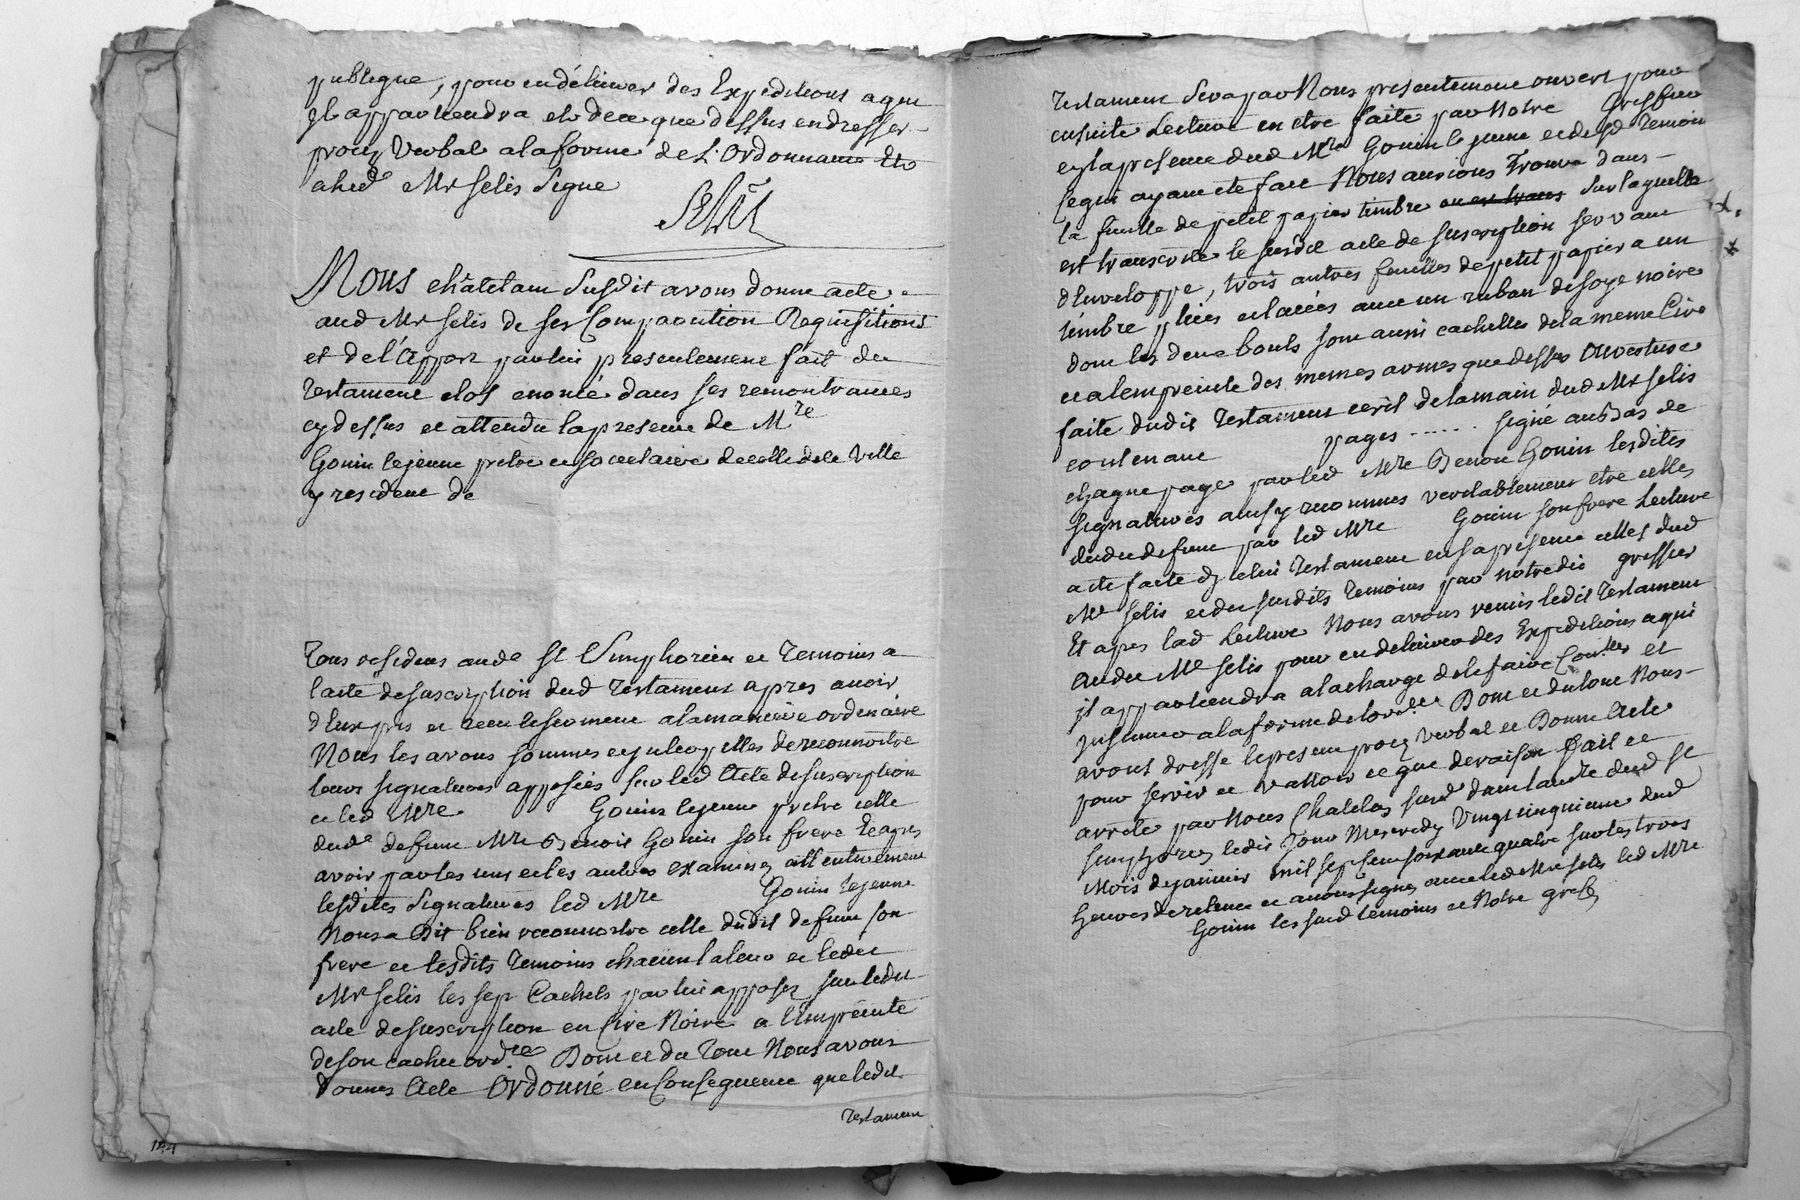 publique, pour en délivrer des Expeditions a qui
Il appartiendra et de ce que dessus en dresser
procez verbal a la forme de L'Ordonnance Et a
Mr Selis Signé
Selis
Nous châtelain Susdit avons donné acte
aud Mr Selis de ses Comparution Requisitions
et de l'apport par lui presentement fait du
Testament clos enoncé dans ses remontrances
cy dessus et attendu la presence de Mre
Gonin le jeune pretre et societaire de celle de la Ville
president de
Tous residens aud St Simphorien et Temoins a
l'acte de suscription dud Testament apres avoir
d'Eux pris et receu le serment a la maniere ordinaire
Nous les avons sommes et interpelles de reconnoitre
leurs signatures apposées sur led Acte de suscription
et led Mre Gonin le jeune pretre celle
dud defunt Mre Benoit Gonin son frere Et apres
avoir par les uns et les autres examinez attentivement
lesdites Signatures led Mre Gonin le jeune
Nous a Dit bien reconnoitre celle dudit defunt son
frere et lesdits Temoins chacun la leur et ledit
Mr Selis les sept Cachets par lui apposez sur ledit
acte de suscription en Cire Noire a l'Empreinte
de son cachet ordre Dont et du Tout Nous avons
donnes Acte Ordonné en Consequence que ledit
Testament
Testament Sera par Nous presentement ouvert pour
ensuite Lecture en etre faite par Notre Greffier
en la presence dud Mre Gonin le jeune et desd Temoin
Ce qui ayant eté fait Nous aurions Trouvé dans
la feuille de petit papier timbre Sur laquelle
est transcrite le susdit acte de suscription servant
d'Enveloppe, trois autres feuilles de petit papier a un
timbre pliées et lacées avec un ruban de soye noire
dont les deux bouts sont aussi cachettes de la meme Cire
et a l'empreinte des memes armes que dessus Ouverture
faite dudit Testament ecrit de la main dud Mr Selis
contenant pages ...... signé au bas de
chaque page par led Mre Benoit Gonin lesdites
signatures aussy reconnues veritablement etre celles
dudit defunt par led Mre Gonin son frere Lecture
a eté faite d'icelui Testament en sa presence celles dud
Mr Selis et des susdits Temoins par notre dit greffier
Et apres lad Lecture Nous avons remis ledit Testament
audit Mr Selis pour en delivrer des Expeditions a qui
il appartiendra a la charge de le faire et
Insinuer a la forme de Dont et du tout Nous
avons dressé le present procez Verbal et Donné Acte
pour servir et valloir ce que de raison Fait et
arrete par Nous Chatelain susd dans dud St
Simphorien ledit Jour Mercredy Vingt cinquieme dud
Mois de janvier mil sept cent soixante quatre sur les trois
heures de relevée et avons signez avec led Mr Selis led Mre
Gonin les susd temoins et Notre greff